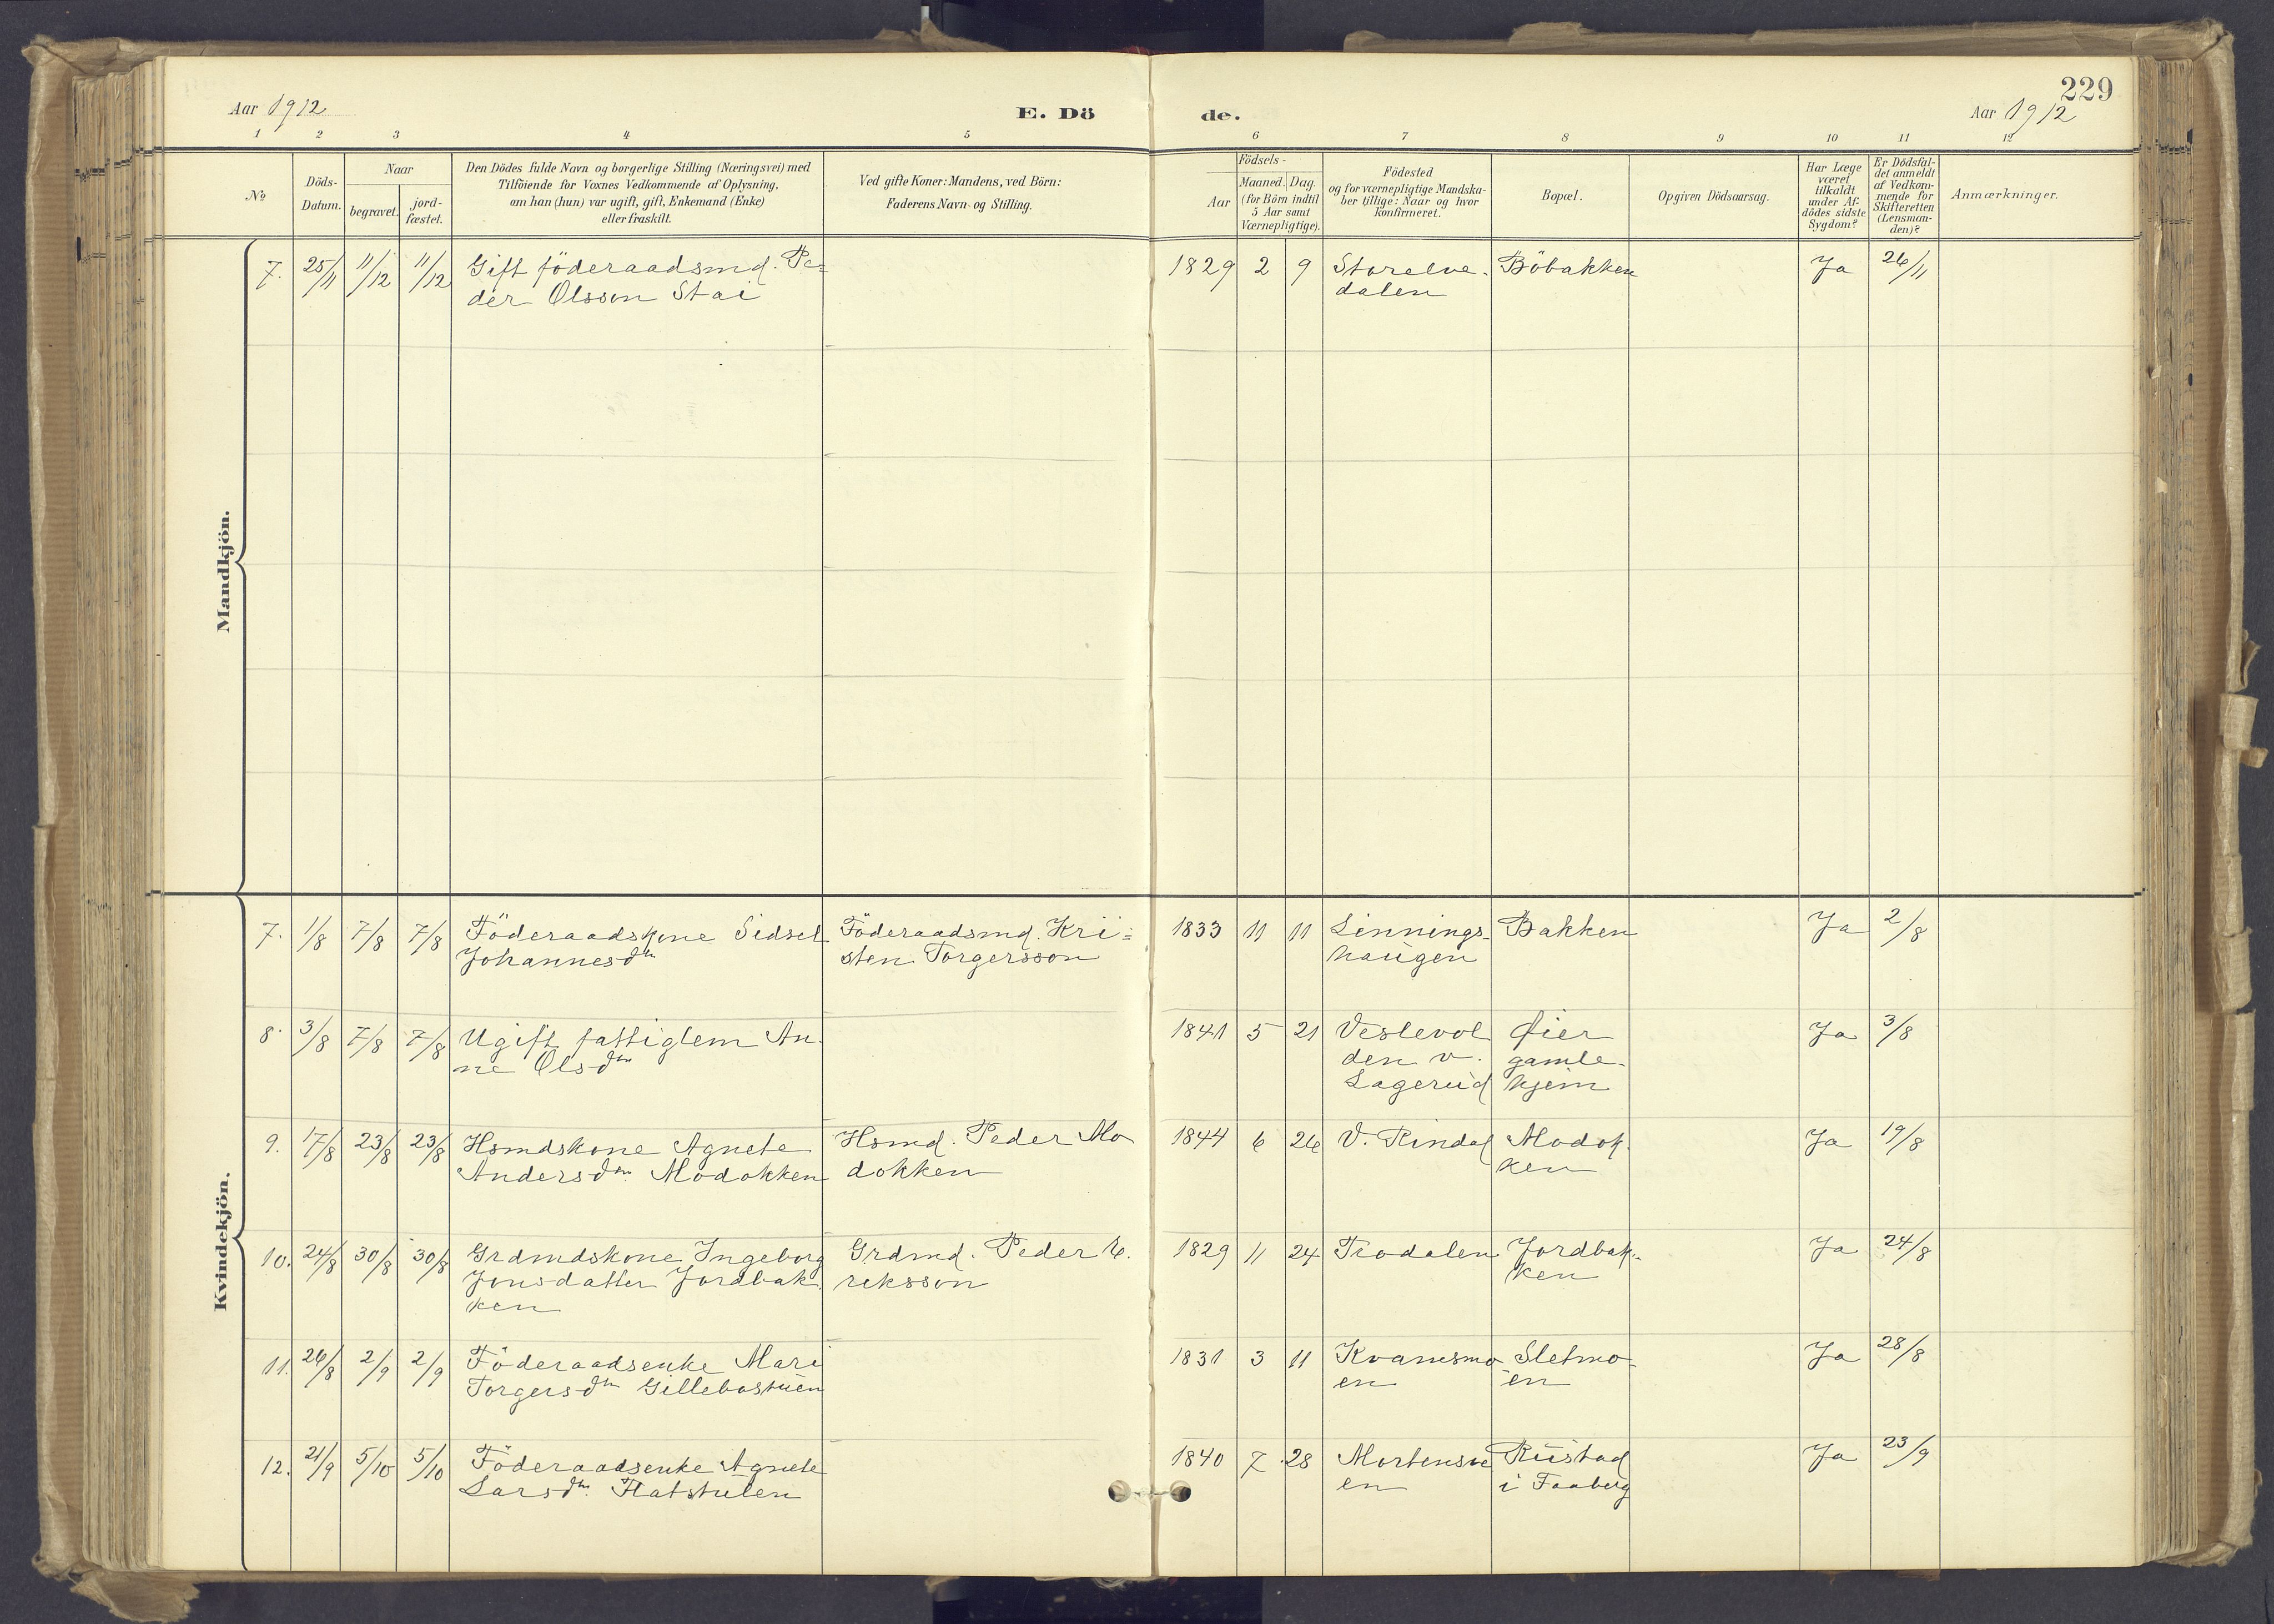 229
Aar 1912 E. Dö de. Aar 1912
1 2 3 4 5 6 7 8 9 10 11 12
№
Döds-
Datum.
Naar
begravet.
jord-
fæstet.
Den Dödes fulde Navn og borgerlige Stilling (Næringsvei) med
Tilföiende for Voxnes Vedkommende af Oplysning,
om han (hun) var ugift, gift, Enkemand (Enke)
eller fraskilt.
Ved gifte Koner: Mandens, ved Börn:
Faderens Navn og Stilling.
Födsels-
Aar
Maaned. Dag.
(for Börn indtil
5 Aar samt
Værnepligtige).
Födested
og for værnepligtige Mandska-
ber tillige: Naar og hvor
konfirmeret.
Bopæl.
Opgiven Dödsaarsag.
Har Læge
været
tilkaldt
under Af-
dödes sidste
Sygdom?
Er Dödsfal-
det anmeldt
af Vedkom-
mende for
Skifteretten
(Lensman-
den)?
Anmærkninger.
Mandkjön.
7. 25/11 11/12 11/12 Gift föderaadsmd. Pe= 1829 2 9 Storelve- Böbakken Ja 26/11
der Olsson Stai dalen
Kvindekjön.
7. 1/8 7/8 7/8 Föderaadskone Sidsel Föderaadsmd. Kri= 1833 11 11 Linnings- Bakken Ja 2/8
Johannesdtr sten Torgersson haugen
8. 3/8 7/8 7/8 Ugift fattiglem An- 1841 5 21 Veslevol Øier Ja 3/8
ne Olsdtr den v. gamle-
Lagerud hjem
9. 17/8 23/8 23/8 Hsmdskone Agnete Hsmd. Peder Mo 1844 6 26 V. Rindal Modok- Ja 19/8
Andersdtr Modokken dokken ken
10. 24/8 30/8 30/8 Grdmdskone Ingeborg Grdmd. Peder E. 1829 11 24 Trodalen Jordbak- Ja 24/8
Jonsdatter Jordbak riksson ken
ken
11. 26/8 2/9 2/9 Föderaadsenke Mari 1831 3 11 Kvamsmo Sletmo- Ja 28/8
Torgersdtr Gillebostuen en en
12. 21/9 5/10 5/10 Föderaadsenke Agnete 1840 7 28 Mortensve Rustad Ja 23/9
Larsdtr Flatstulen en i Faaberg